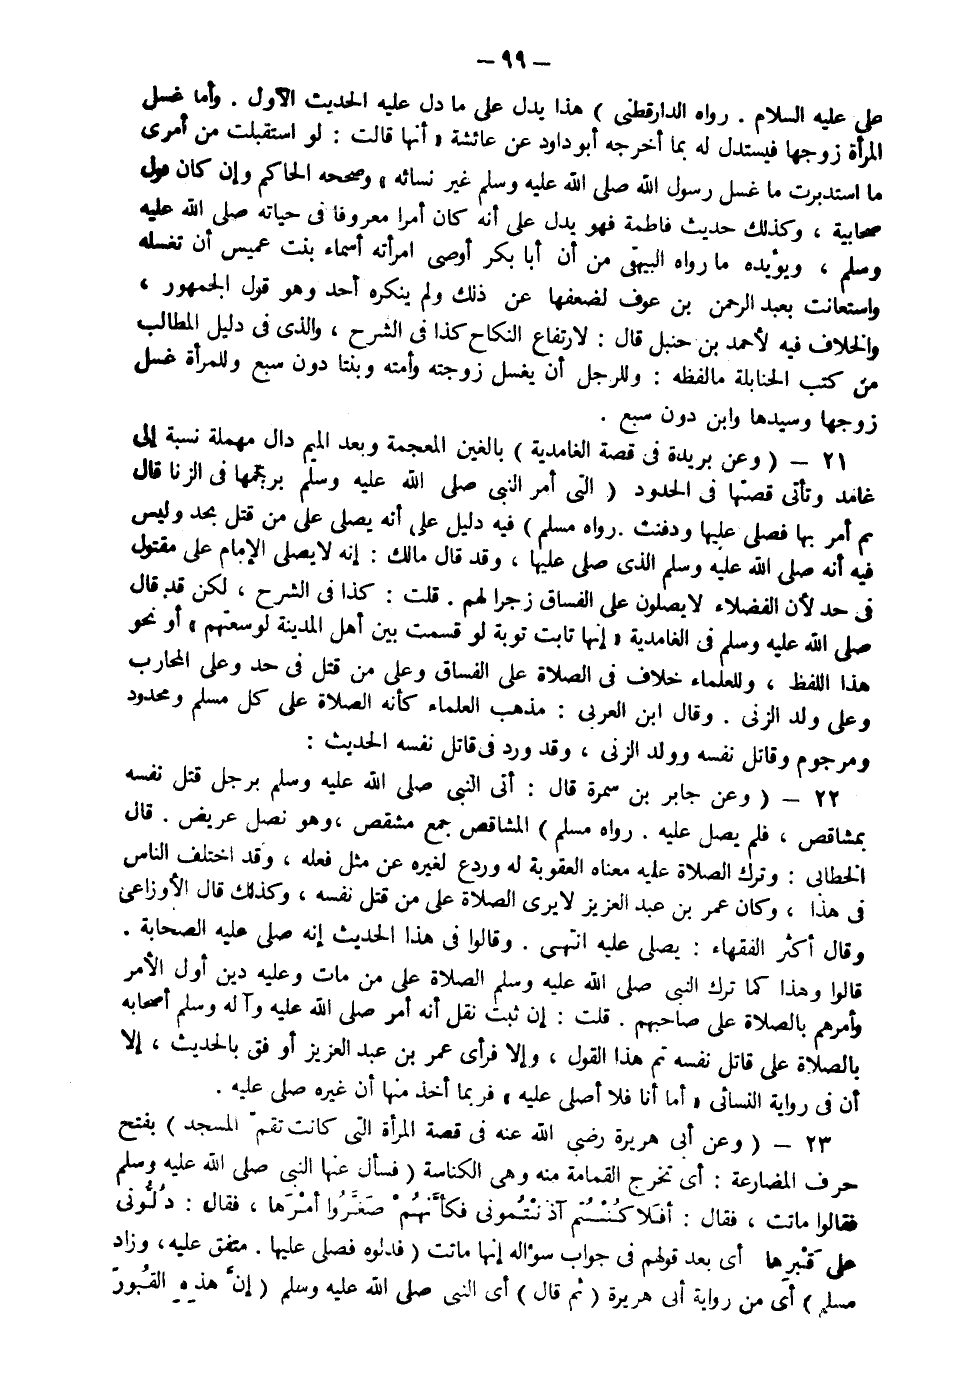 — ٩٩ —
على عليه السلام . رواه الدارقطنى ) هذا يدل على ما دل عليه الحديث الأول . وأما غسل
المرأة زوجها فيستدل له بما أخرجه أبو داود عن عائشة « أنها قالت : لو استقبلت من أمرى
ما استدبرت ما غسل رسول الله صلى الله عليه وسلم غير نسائه » وصححه الحاكم وإن كان قول
صحابية ، وكذلك حديث فاطمة فهو يدل على أنه كان أمرا معروفا فى حياته صلى الله عليه
وسلم ، ويؤيده ما رواه البيهقى من أن أبا بكر أوصى امرأته أسماء بنت عميس أن تغسله
واستعانت بعبد الرحمن بن عوف لضعفها عن ذلك ولم ينكره أحد وهو قول الجمهور ،
والخلاف فيه لأحمد بن حنبل قال : لارتفاع النكاح كذا فى الشرح ، والذى فى دليل المطالب
من كتب الحنابلة مالفظه : وللرجل أن يغسل زوجته وأمته وبنتا دون سبع وللمرأة غسل
زوجها وسيدها وابن دون سبع .
٢١ — ( وعن بريدة فى قصة الغامدية ) بالغين المعجمة وبعد الميم دال مهملة نسبة إلى
غامد وتأتى قصتها فى الحدود ( التى أمر النبى صلى الله عليه وسلم برجمها فى الزنا قال
ثم أمر بها فصلى عليها ودفنت . رواه مسلم ) فيه دليل على أنه يصلى على من قتل بحد وليس
فيه أنه صلى الله عليه وسلم الذى صلى عليها ، وقد قال مالك : إنه لايصلى الإمام على مقتول
فى حد لأن الفضلاء لايصلون على الفساق زجرا لهم . قلت : كذا فى الشرح ، لكن قد قال
صلى الله عليه وسلم فى الغامدية « إنها تابت توبة لو قسمت بين أهل المدينة لوسعتهم » أو نحو
هذا اللفظ ، وللعلماء خلاف فى الصلاة على الفساق وعلى من قتل فى حد وعلى المحارب
وعلى ولد الزنى . وقال ابن العربى : مذهب العلماء كأنه الصلاة على كل مسلم ومحدود
ومرجوم وقاتل نفسه وولد الزنى ، وقد ورد فى قاتل نفسه الحديث :
٢٢ — ( وعن جابر بن سمرة قال : أتى النبى صلى الله عليه وسلم برجل قتل نفسه
بمشاقص ، فلم يصل عليه . رواه مسلم ) المشاقص جمع مشقص ، وهو نصل عريض . قال
الخطابى : وترك الصلاة عليه معناه العقوبة له وردع لغيره عن مثل فعله ، وقد اختلف الناس
فى هذا ، وكان عمر بن عبد العزيز لايرى الصلاة على من قتل نفسه ، وكذلك قال الأوزاعى
وقال أكثر الفقهاء : يصلى عليه انتهى . وقالوا فى هذا الحديث إنه صلى عليه الصحابة .
قالوا وهذا كما ترك النبى صلى الله عليه وسلم الصلاة على من مات وعليه دين أول الأمر
وأمرهم بالصلاة على صاحبهم . قلت : إن ثبت نقل أنه أمر صلى الله عليه وآله وسلم أصحابه
بالصلاة على قاتل نفسه تم هذا القول ، وإلا فرأى عمر بن عبد العزيز أوفق بالحديث ، إلا
أن فى رواية النسائى « أما أنا فلا أصلى عليه » فربما أخذ منها أن غيره صلى عليه .
٢٣ — ( وعن أبى هريرة رضى الله عنه فى قصة المرأة التى كانت تقمّ المسجد ) بفتح
حرف المضارعة : أى تخرج القمامة منه وهى الكناسة ( فسأل عنها النبى صلى الله عليه وسلم
فقالوا ماتت ، فقال : أَفَلا كُنْتُم آذَنْتُمونى فكأنَّهُمْ صَغَّرُوا أمْرَها ، فقال : دُلُّونى
على قَبْرِها أى بعد قولهم فى جواب سؤاله إنها ماتت ( فدلوه فصلى عليها . متفق عليه ، وزاد
مسلم ) أى من رواية أبى هريرة ( ثم قال ) أى النبى صلى الله عليه وسلم ( إنَّ هذه القُبورَ